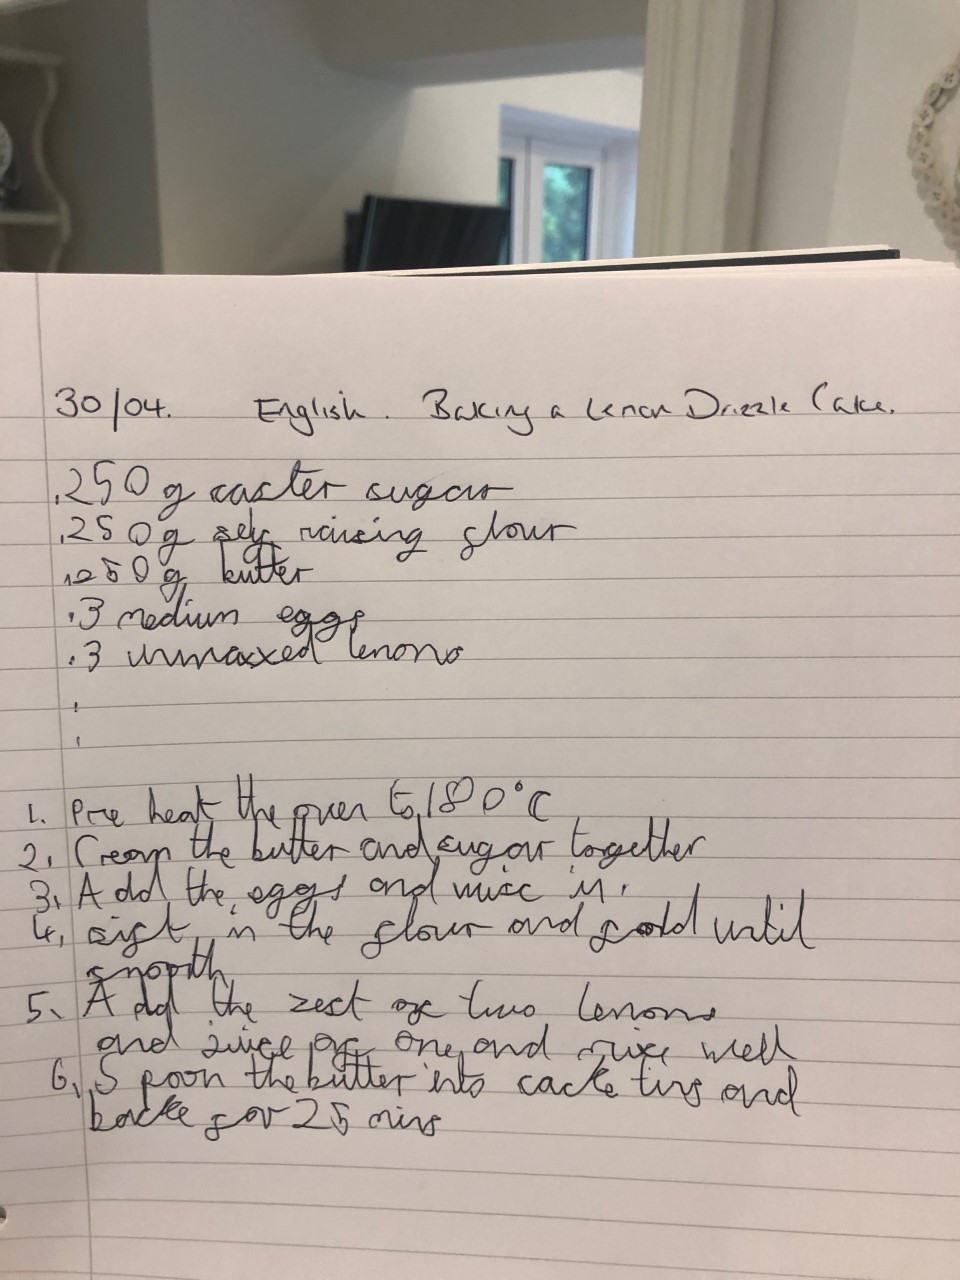 30/04. English. Baking a Lemon Drizzle Cake.
.250g caster sugar
.250g self raising flour
.250g butter
.3 medium eggs
.3 unmaxxed lemons
1. Pre heat the oven to 180°C
2. Cream the butter and sugar together
3. Add the eggs and mixc in.
4. sift in the flour and fold until
smooth
5. Add the zest of two lemons
and juice of one and mixe well
6. Spoon the butter into cacke tins and
backe for 25 mins